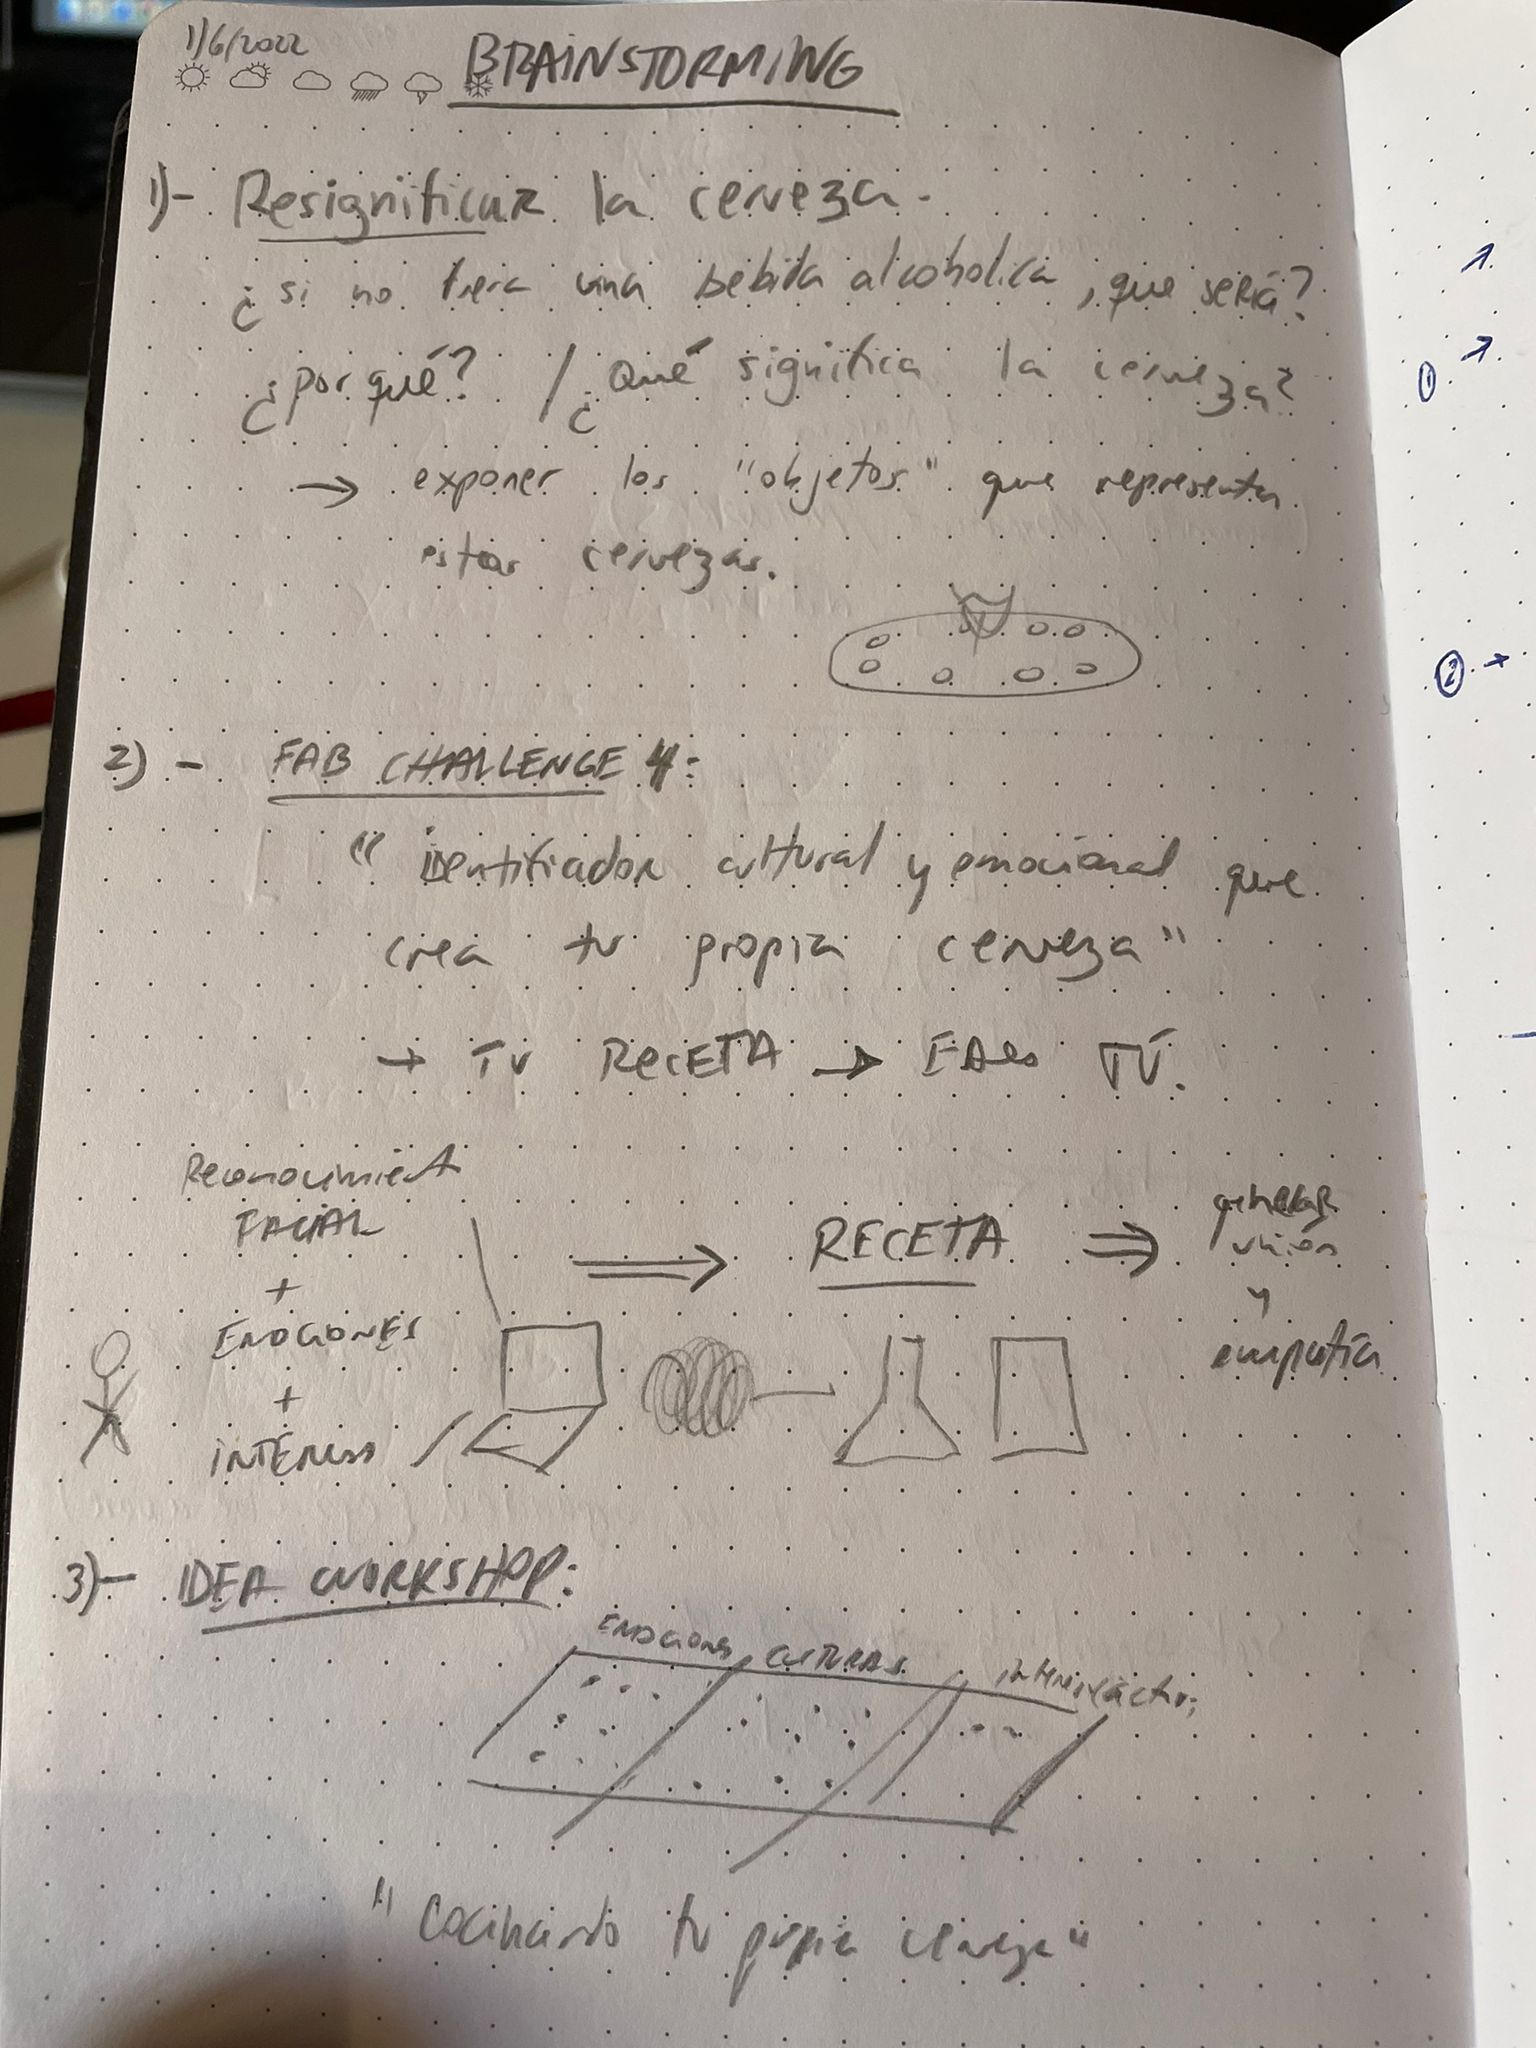 1/6/2022
BRAINSTORMING
1)- Resignificar la cerveza.
¿si no fuera una bebida alcoholica, que sería?
¿por qué? / ¿Qué significa la cerveza?
→ exponer los "objetos" que representan
estas cervezas.
2) - FAB CHALLENGE 4:
" identificador cultural y emocional que
crea tu propia cerveza"
→ TU RECETA →  TÚ.
Reconocimiento
FACIAL
+
EMOCIONES
+
INTERESES
⇒ RECETA ⇒
generar
unión
y
empatía
3)- IDEA WORKSHOP:
EMOCIONES CULTURAS
"Cocinando tu propia cerveza"
①
②